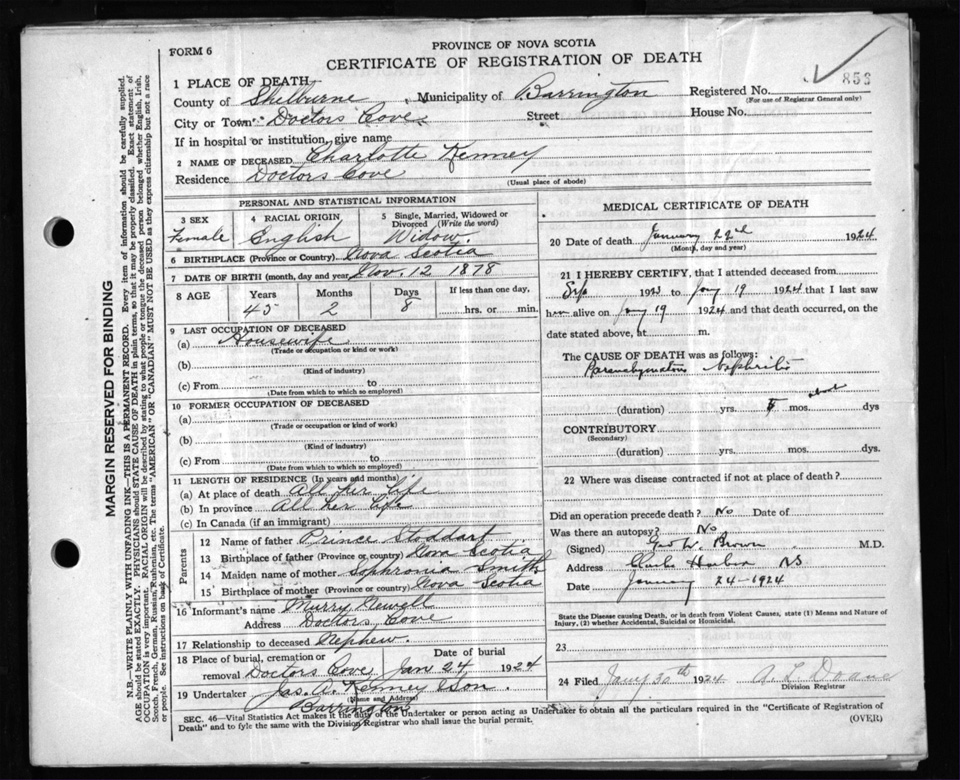 PROVINCE OF NOVA SCOTIA
FORM 6
CERTIFICATE OF REGISTRATION OF DEATH
856
1 PLACE OF DEATH
County of Shelburne, Municipality of Barrington Registered No.
(For use of Registrar General only)
City or Town Doctors Cove Street House No.
If in hospital or institution, give name
2 NAME OF DECEASED Charlotte Kenney
Residence Doctors Cove
(Usual place of abode)
PERSONAL AND STATISTICAL INFORMATION
3 SEX 4 RACIAL ORIGIN 5 Single, Married, Widowed or Divorced (Write the word)
Female English Widow
6 BIRTHPLACE (Province or Country) Nova Scotia
7 DATE OF BIRTH (month, day and year) Nov. 12 1878
8 AGE Years Months Days If less than one day,
45 2 8 hrs. or min.
9 LAST OCCUPATION OF DECEASED
(a) Housewife
(Trade or occupation or kind or work)
(b)
(Kind of industry)
(c) From to
(Date from which to which employed)
10 FORMER OCCUPATION OF DECEASED
(a)
(Trade or occupation or kind of work)
(b)
(Kind of industry)
(c) From to
(Date from which to which so employed)
11 LENGTH OF RESIDENCE (In years and months)
(a) At place of death All her life
(b) In province All her life
(c) In Canada (if an immigrant)
Parents
12 Name of father Prince Stoddart
13 Birthplace of father (Province or country) Nova Scotia
14 Maiden name of mother Sophronia Smith
15 Birthplace of mother (Province or country) Nova Scotia
16 Informant's name Murry Newell
Address Doctors Cove
17 Relationship to deceased Nephew.
18 Place of burial, cremation or removal Doctors Cove Date of burial Jan 24 1924
19 Undertaker Jas. A. Kenney & Son.
(Name and Address)
Barrington
MEDICAL CERTIFICATE OF DEATH
20 Date of death January 22nd 1924
(Month, day and year)
21 I HEREBY CERTIFY, that I attended deceased from
Sep 1923 to Jany 19 1924 that I last saw
her alive on Jany 19 1924 and that death occurred, on the
date stated above, at m.
The CAUSE OF DEATH was as follows:
Parenchymatous Nephritis
about
(duration) yrs. 5 mos. dys
CONTRIBUTORY
(Secondary)
(duration) yrs. mos. dys.
22 Where was disease contracted if not at place of death?
Did an operation precede death? No Date of
Was there an autopsy? No
(Signed) Geo W. Brown M.D.
Address Clarks Harbor NS
Date January 24-1924
State the Disease causing Death, or in death from Violent Causes, state (1) Means and Nature of
Injury, (2) whether Accidental, Suicidal or Homicidal.
23
24 Filed Jany 30th 1924 A. L. Doane
Division Registrar
SEC. 46—Vital Statistics Act makes it the duty of the Undertaker or person acting as Undertaker to obtain all the particulars required in the "Certificate of Registration of
Death" and to fyle the same with the Division Registrar who shall issue the burial permit. (OVER)
MARGIN RESERVED FOR BINDING
N.B.—WRITE PLAINLY WITH UNFADING INK—THIS IS A PERMANENT RECORD. Every item of information should be carefully supplied.
AGE should be stated EXACTLY. PHYSICIANS should STATE CAUSE OF DEATH in plain terms, so that it may be properly classified. Exact statement of
OCCUPATION is very important. RACIAL ORIGIN will be described by stating to what people or tongue the deceased person belonged whether English, Irish,
Scotch, French, German, Russian, Ruthenian, etc. The terms "AMERICAN" OR "CANADIAN" MUST NOT BE USED as they express citizenship but not a race
or people. See instructions on back of Certificate.